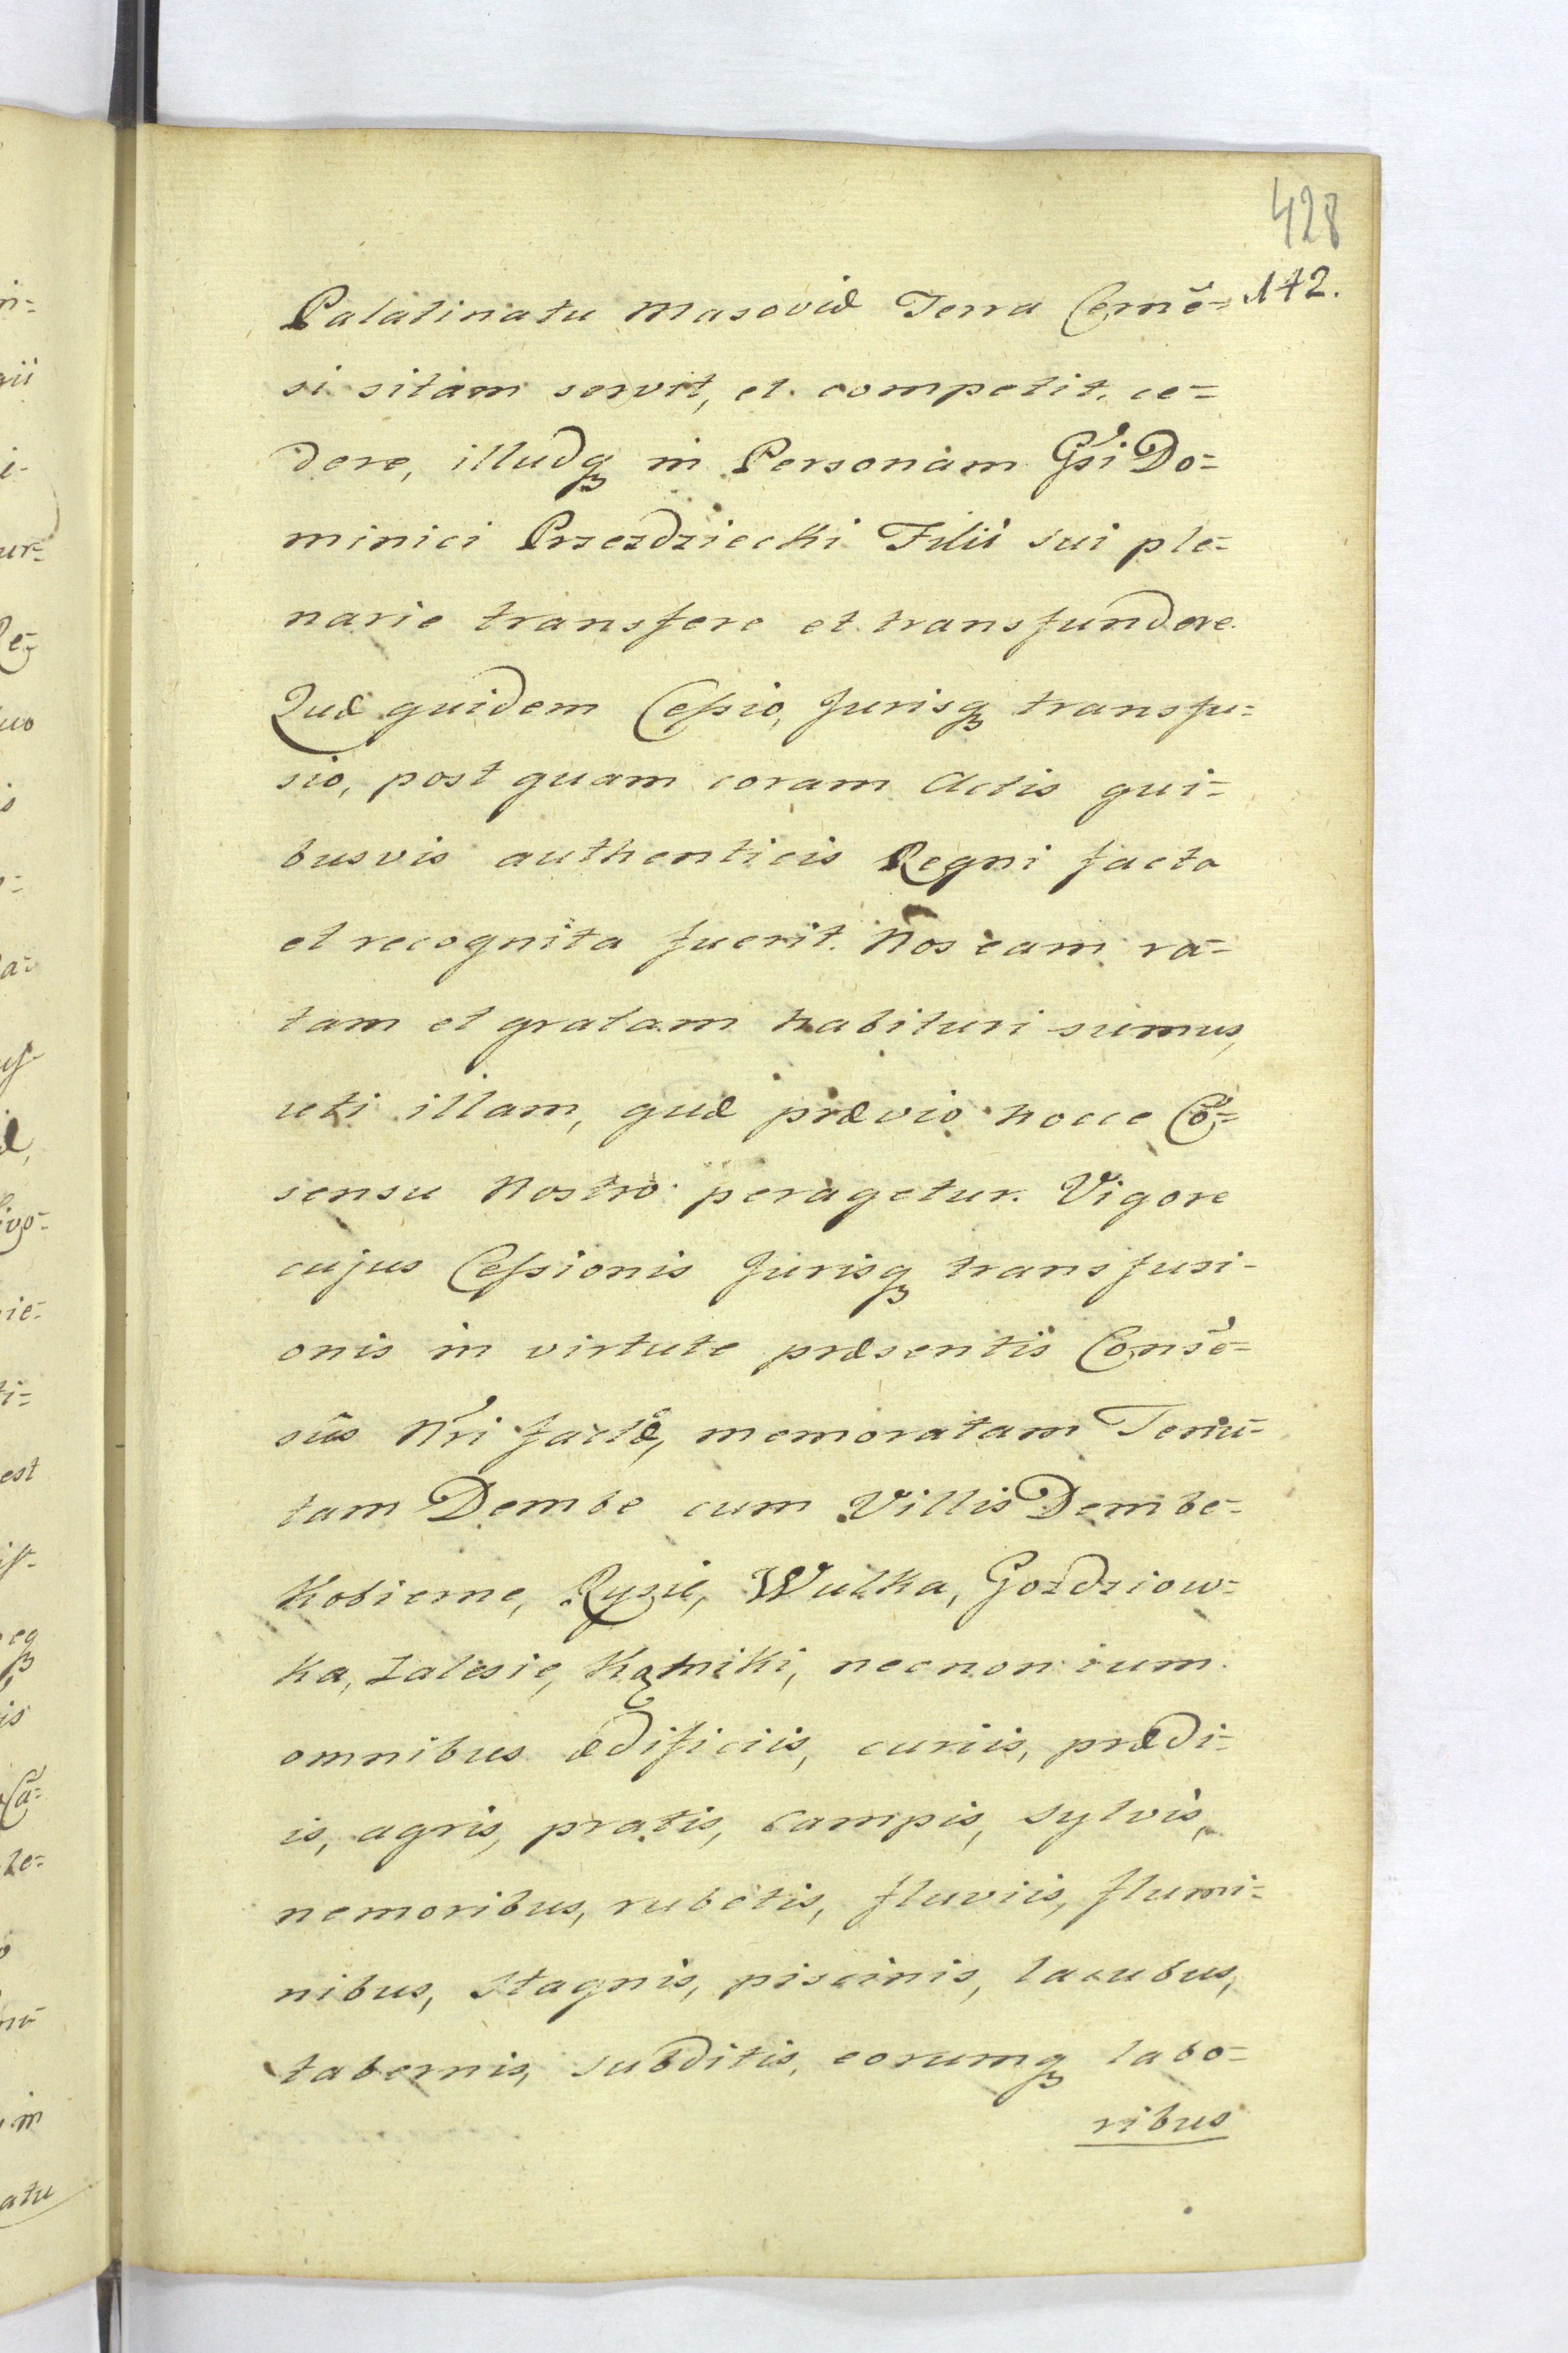 428
142.
Palatinatu Masoviæ Terra Cernē-
si sitam servit, et competit, ce=
dere, illudq in Personam Gsi Do=
minici Przezdziecki Filii sui ple=
narie transfere et transfundere.
Quæ quidem Cessio, Jurisq transfu=
sio, post quam coram Actis qui=
busvis authenticis Regni facta
et recognita fuerit. Nos eam ra=
tam et gratam habituri sumus,
uti illam, quæ prævio hocce Cō=
sensu Nostro peragetur. Vigore
cujus Cessionis Jurisq transfusi-
onis in virtute præsentis Consē=
sûs Nri factæ, memoratam Tenu=
tam Dembe cum Villis Dembe=
Kobierne, Rysie, Wulka, Gozdziow=
ka, Zalesie, necnon cum
omnibus ædificiis, curiis, prædi=
is, agris, pratis, campis, sylvis,
nemoribus, rubetis, fluviis, flumi=
nibus, stagnis, piscinis, lacubus,
tabernis, subditis, eorumq labo=
ribus